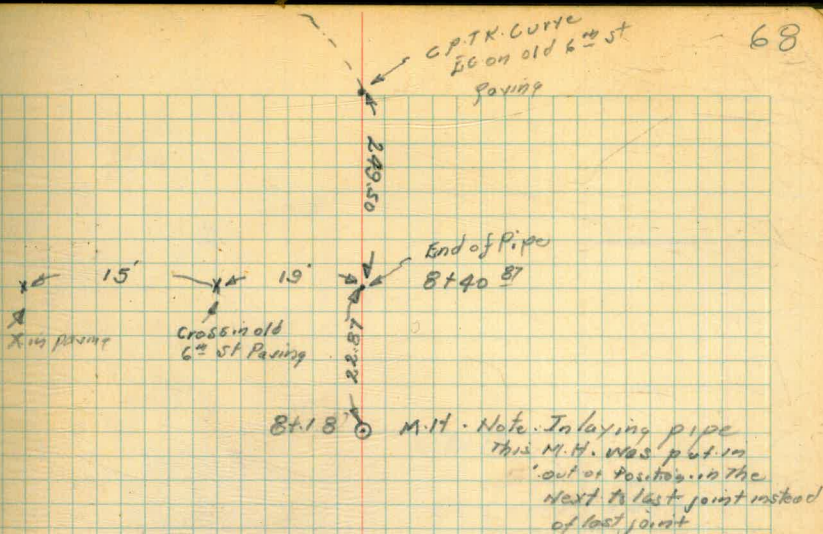 68
C.P.TK. Curve
EC on old 6th st
Paving
249.50
End of Pipe
8+40 87
15'
19'
X in paving
Cross in old
6th St Paving
22.87
8+18
M.H. Note. In laying pipe
This M.H. was put in
out of Position in The
Next to last joint instead
of last joint